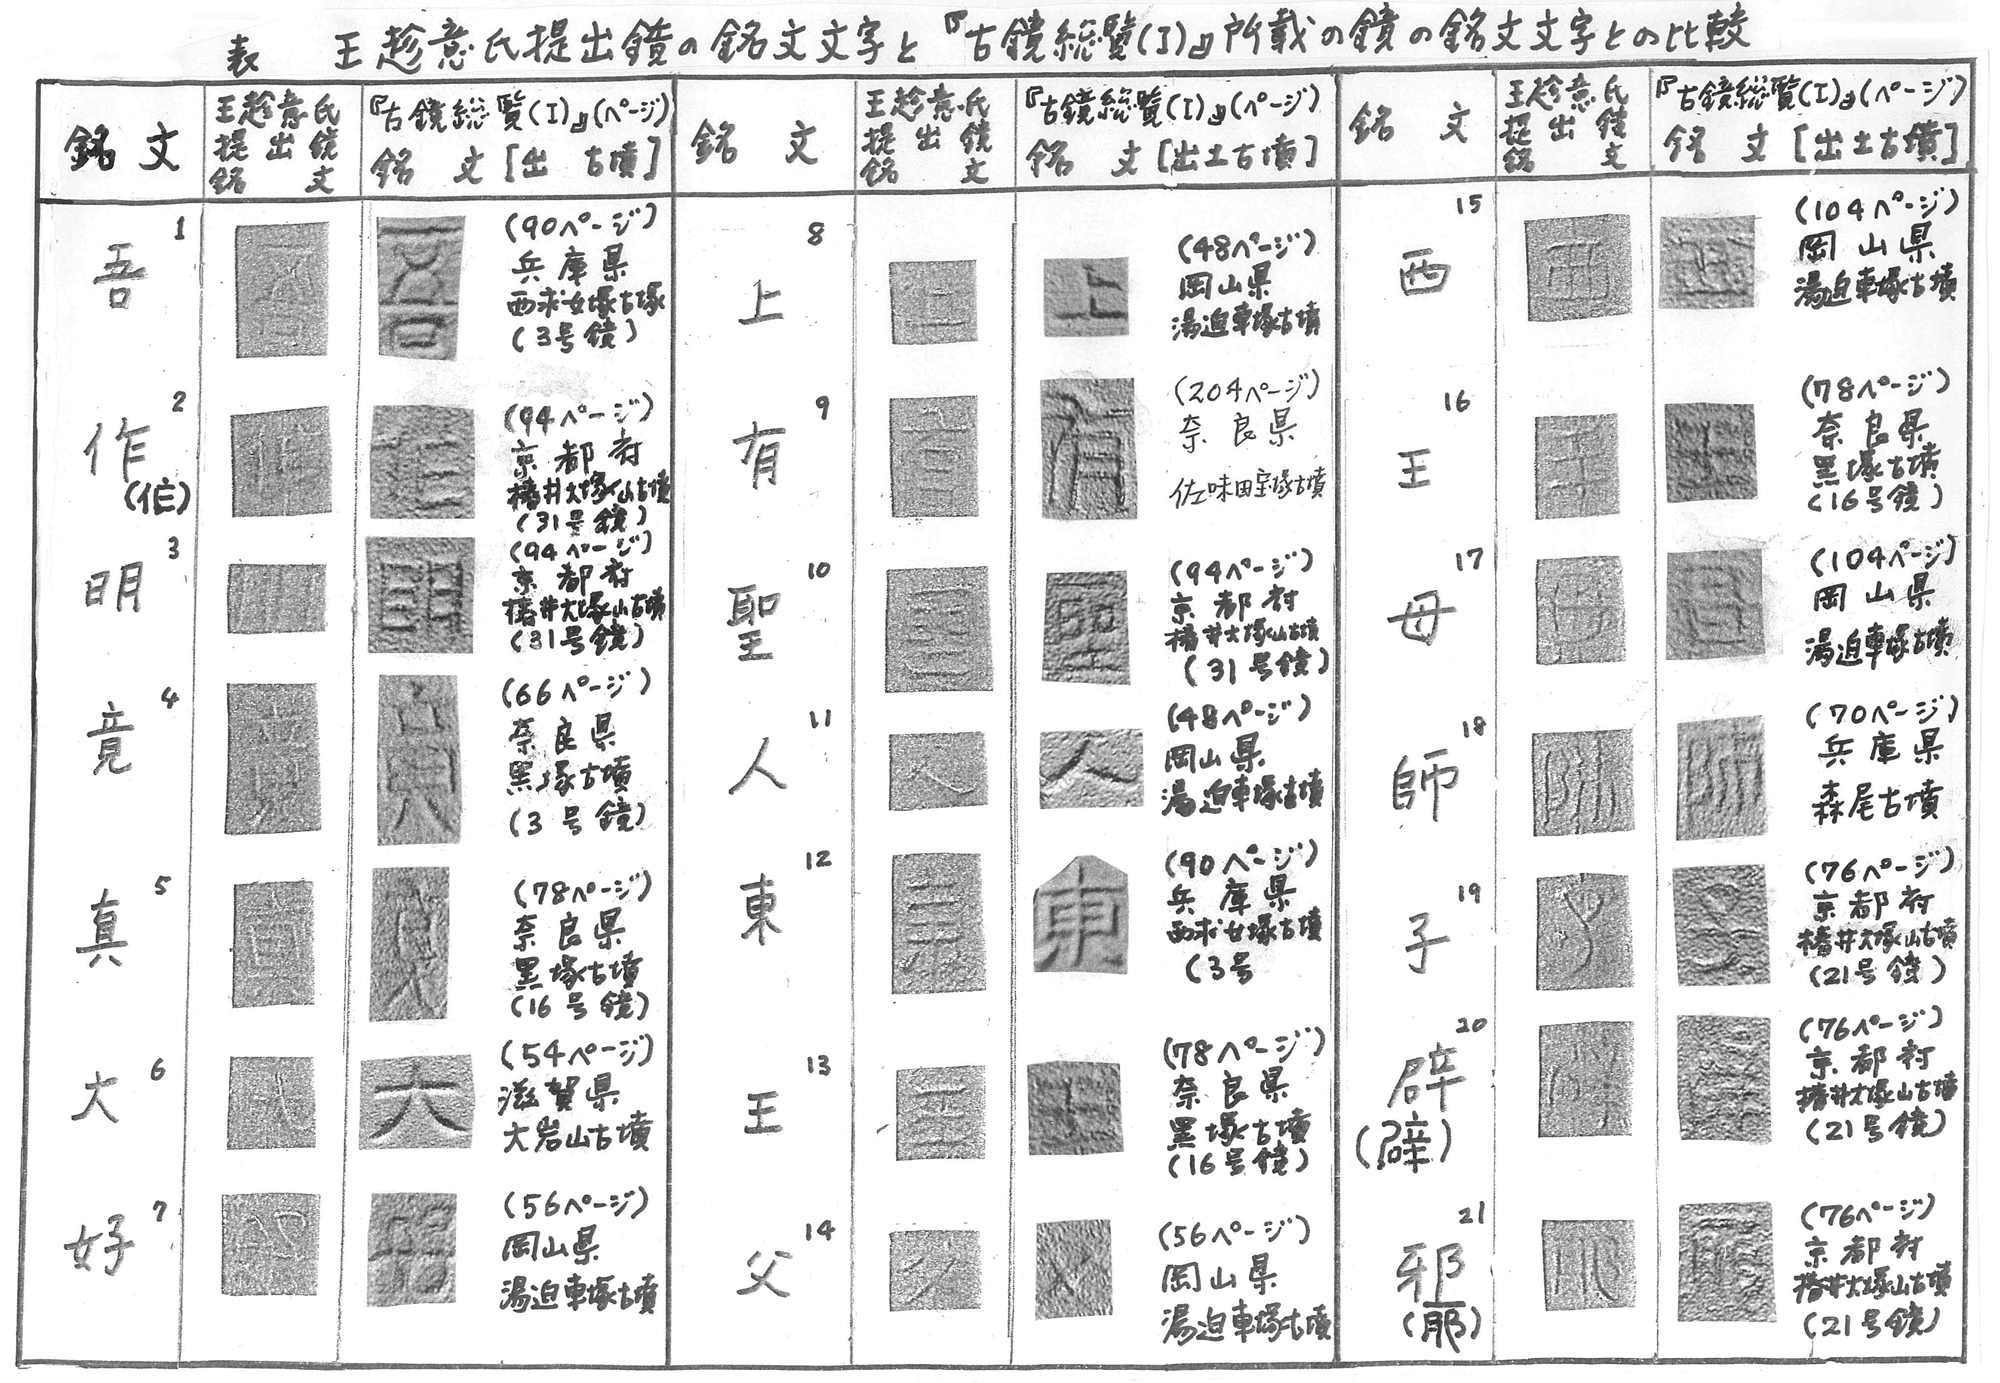 表 王趁意氏提出鏡の銘文文字と『古鏡総覧(I)』所載の鏡の銘文文字との比較
銘文
王趁意氏
提出鏡
銘文
『古鏡総覧(I)』(ページ)
銘文[出 古墳]
1
吾
(90ページ)
兵庫県
西求女塚古塚
(3号鏡)
2
作
(㑅)
(94ページ)
京都府
椿井大塚山古墳
(31号鏡)
3
明
(94ページ)
京都府
椿井大塚山古墳
(31号鏡)
4
竟
(66ページ)
奈良県
黒塚古墳
(3号鏡)
5
真
(78ページ)
奈良県
黒塚古墳
(16号鏡)
6
大
(54ページ)
滋賀県
大岩山古墳
7
好
(56ページ)
岡山県
湯迫車塚古墳
銘文
王趁意氏
提出鏡
銘文
『古鏡総覧(I)』(ページ)
銘文[出土古墳]
8
上
(48ページ)
岡山県
湯迫車塚古墳
9
有
(204ページ)
奈良県
佐味田宝塚古墳
10
聖
(94ページ)
京都府
椿井大塚山古墳
(31号鏡)
11
人
(48ページ)
岡山県
湯迫車塚古墳
12
東
(90ページ)
兵庫県
西求女塚古墳
(3号
13
王
(78ページ)
奈良県
黒塚古墳
(16号鏡)
14
父
(56ページ)
岡山県
湯迫車塚古墳
銘文
王趁意氏
提出鏡
銘文
『古鏡総覧(I)』(ページ)
銘文[出土古墳]
15
西
(104ページ)
岡山県
湯迫車塚古墳
16
王
(78ページ)
奈良県
黒塚古墳
(16号鏡)
17
母
(104ページ)
岡山県
湯迫車塚古墳
18
師
(70ページ)
兵庫県
森尾古墳
19
子
(76ページ)
京都府
椿井大塚山古墳
(21号鏡)
20
辟
(76ページ)
京都府
椿井大塚山古墳
(21号鏡)
21
邪
(76ページ)
京都府
椿井大塚山古墳
(21号鏡)